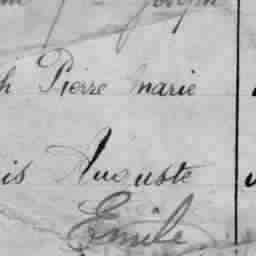 Joseph
h Pierre marie
is Auguste
Emile